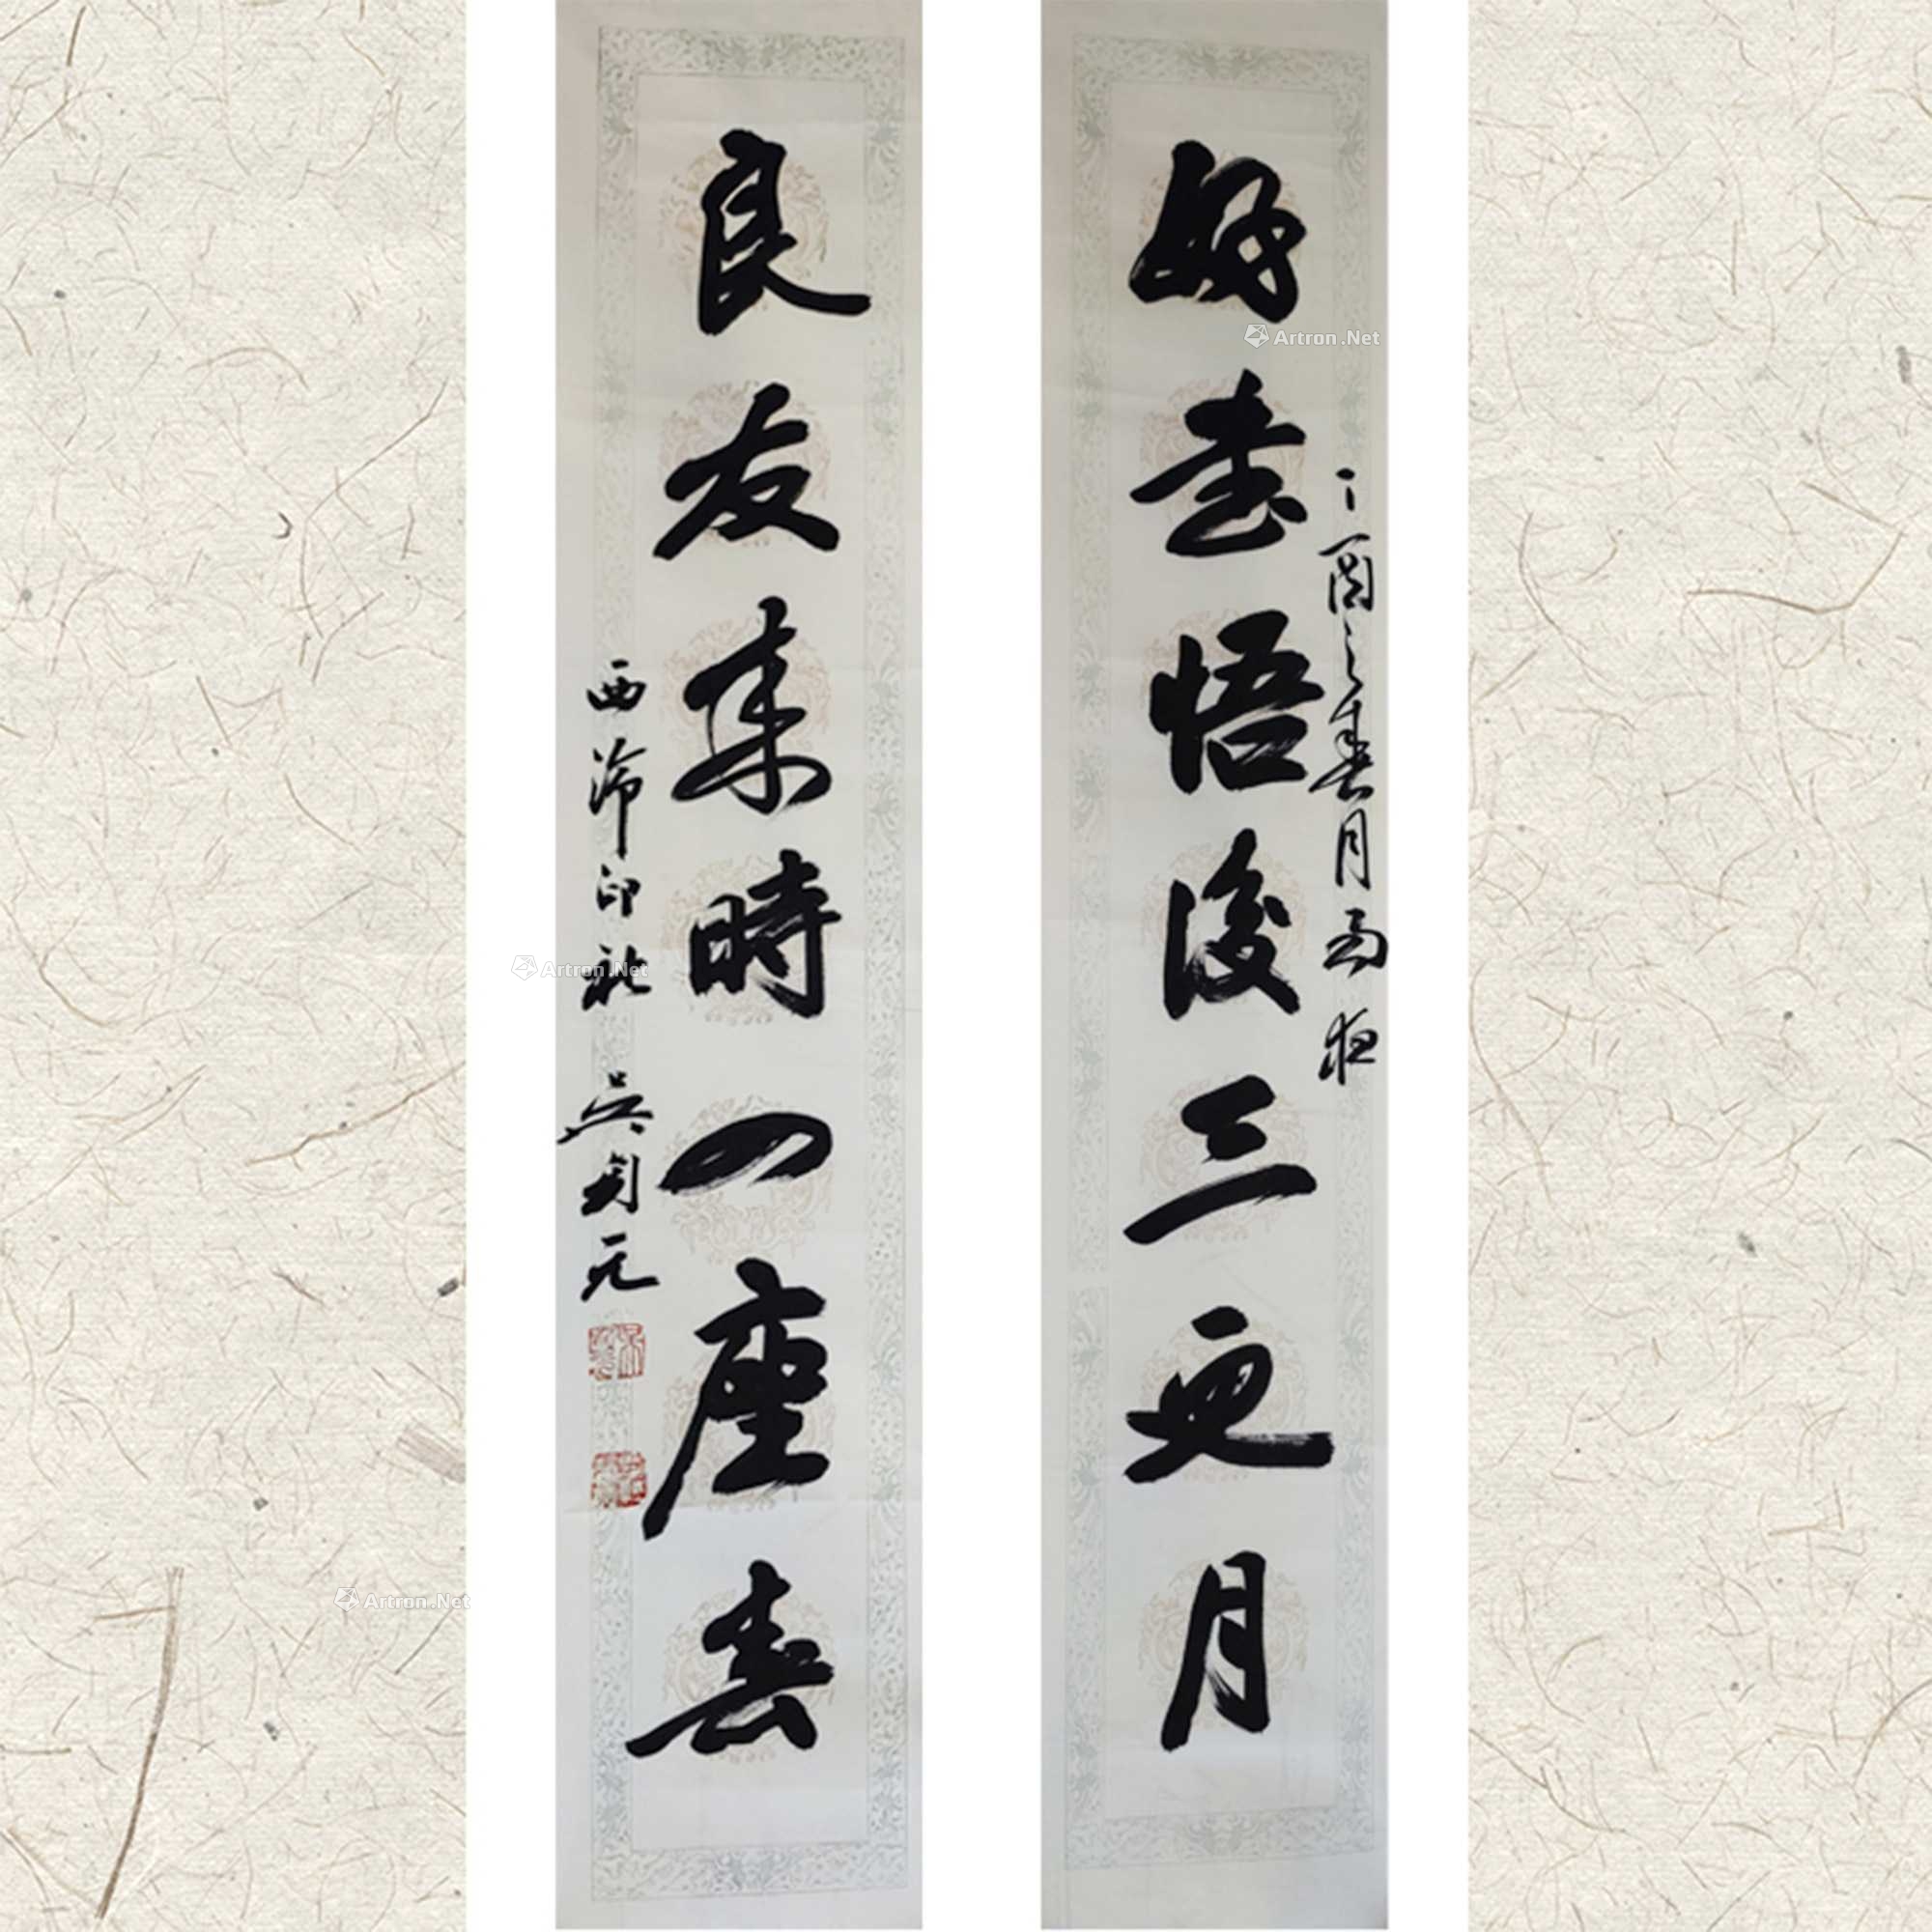 好書悟後三更月
丁酉之春月雨夜
良友來時一座春
西泠印社 吳剑元
Artron.Net
Artron.Net
Artron.Net